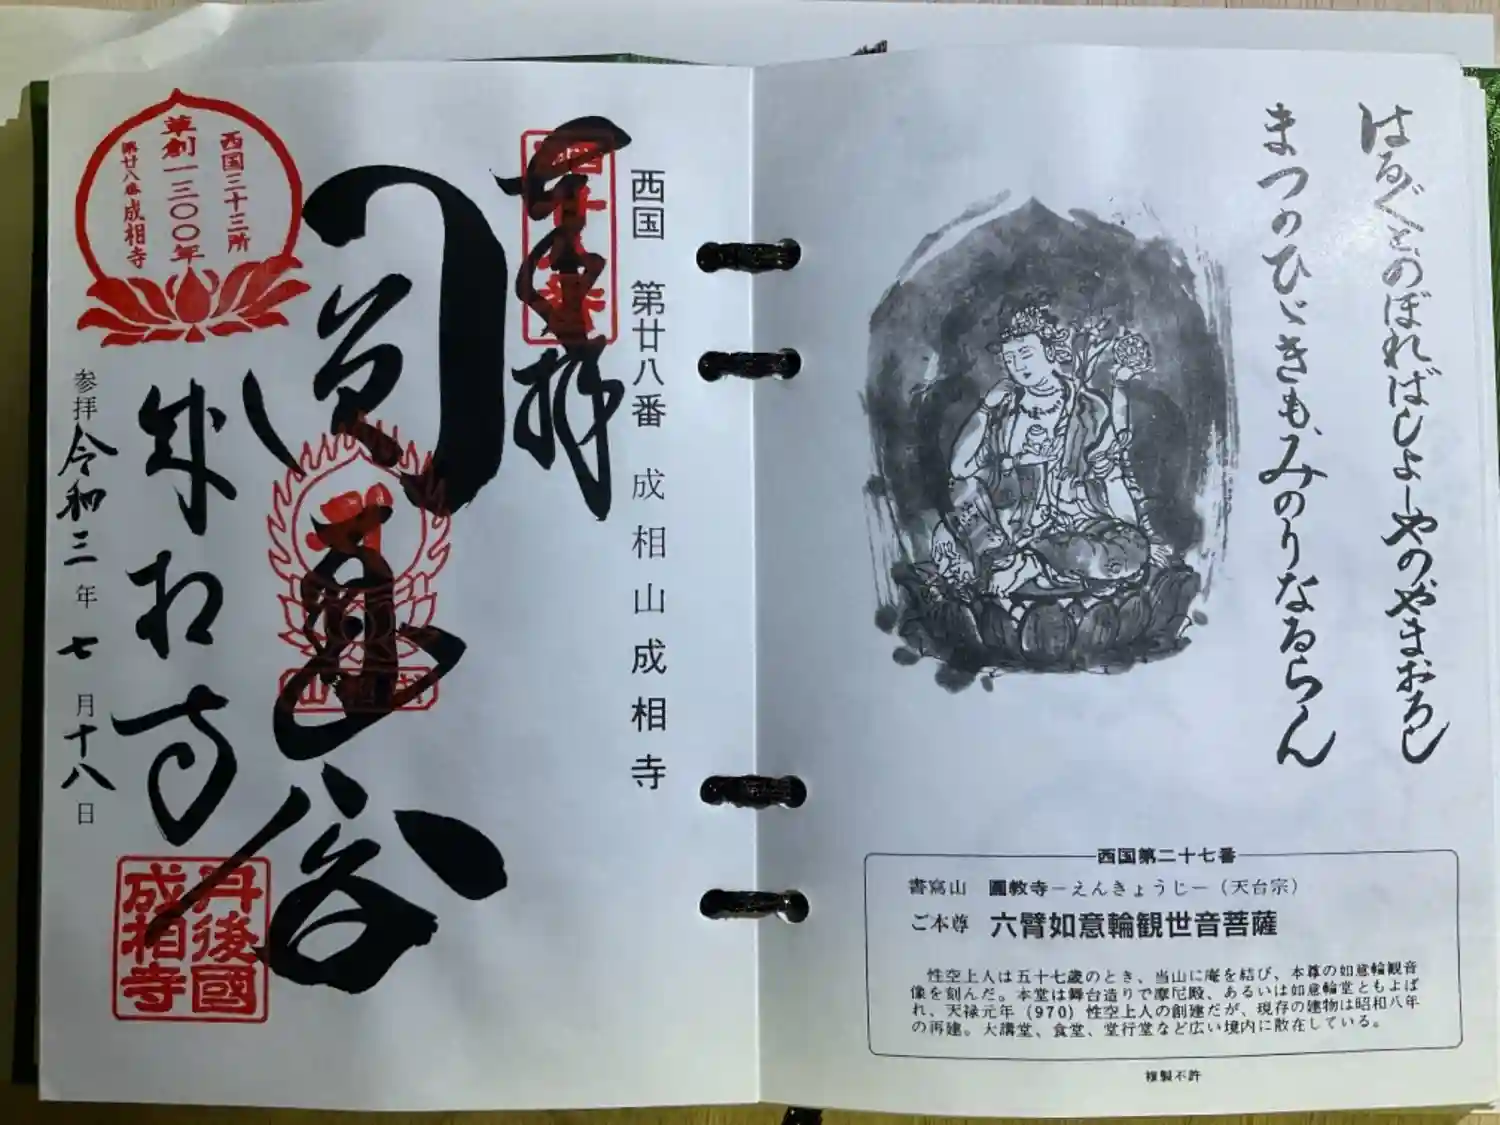 はるぐとのぼればしよしやのやまおろし
まつのひゞきもみのりなるらん
西国第二十七番
書寫山 圓教寺－えんきょうじ－（天台宗）
ご本尊 六臂如意輪観世音菩薩
性空上人は五十七歳のとき、当山に庵を結び、本尊の如意輪観音
像を刻んだ。本堂は舞台造りで摩尼殿、あるいは如意輪堂ともよば
れ、天禄元年（970）性空上人の創建だが、現存の建物は昭和八年
の再建。大講堂、食堂、堂行堂など広い境内に散在している。
複製不許
西国 第廿八番 成相山成相寺
奉拝
圓通閣
成相寺
西国三十三所
草創一三〇〇年
第廿八番成相寺
参拝令和三年七月十八日
丹後國
成相寺